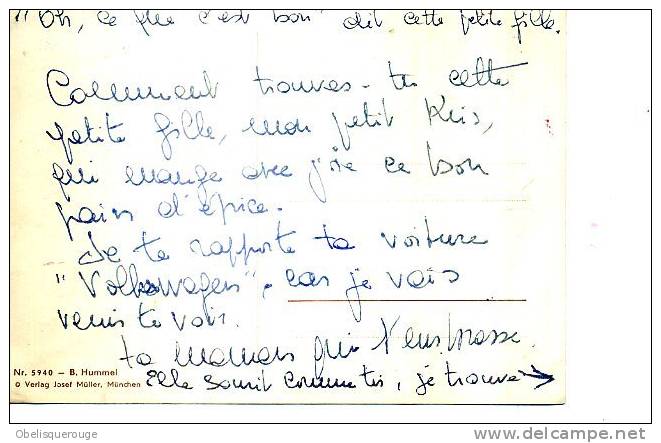 "Oh, ce que c'est bon" dit cette petite fille.
Comment trouves-tu cette
petite fille, mon petit Kris,
qui mange avec joie ce bon
pain d'épice.
Je te rapporte ta voiture
"Volkswagen", car je vais
venir te voir.
ta maman qui t'embrasse.
Elle sourit comme toi, je trouve →
Nr. 5940 — B. Hummel
© Verlag Josef Müller, München
Obelisquerouge
delcampe.net